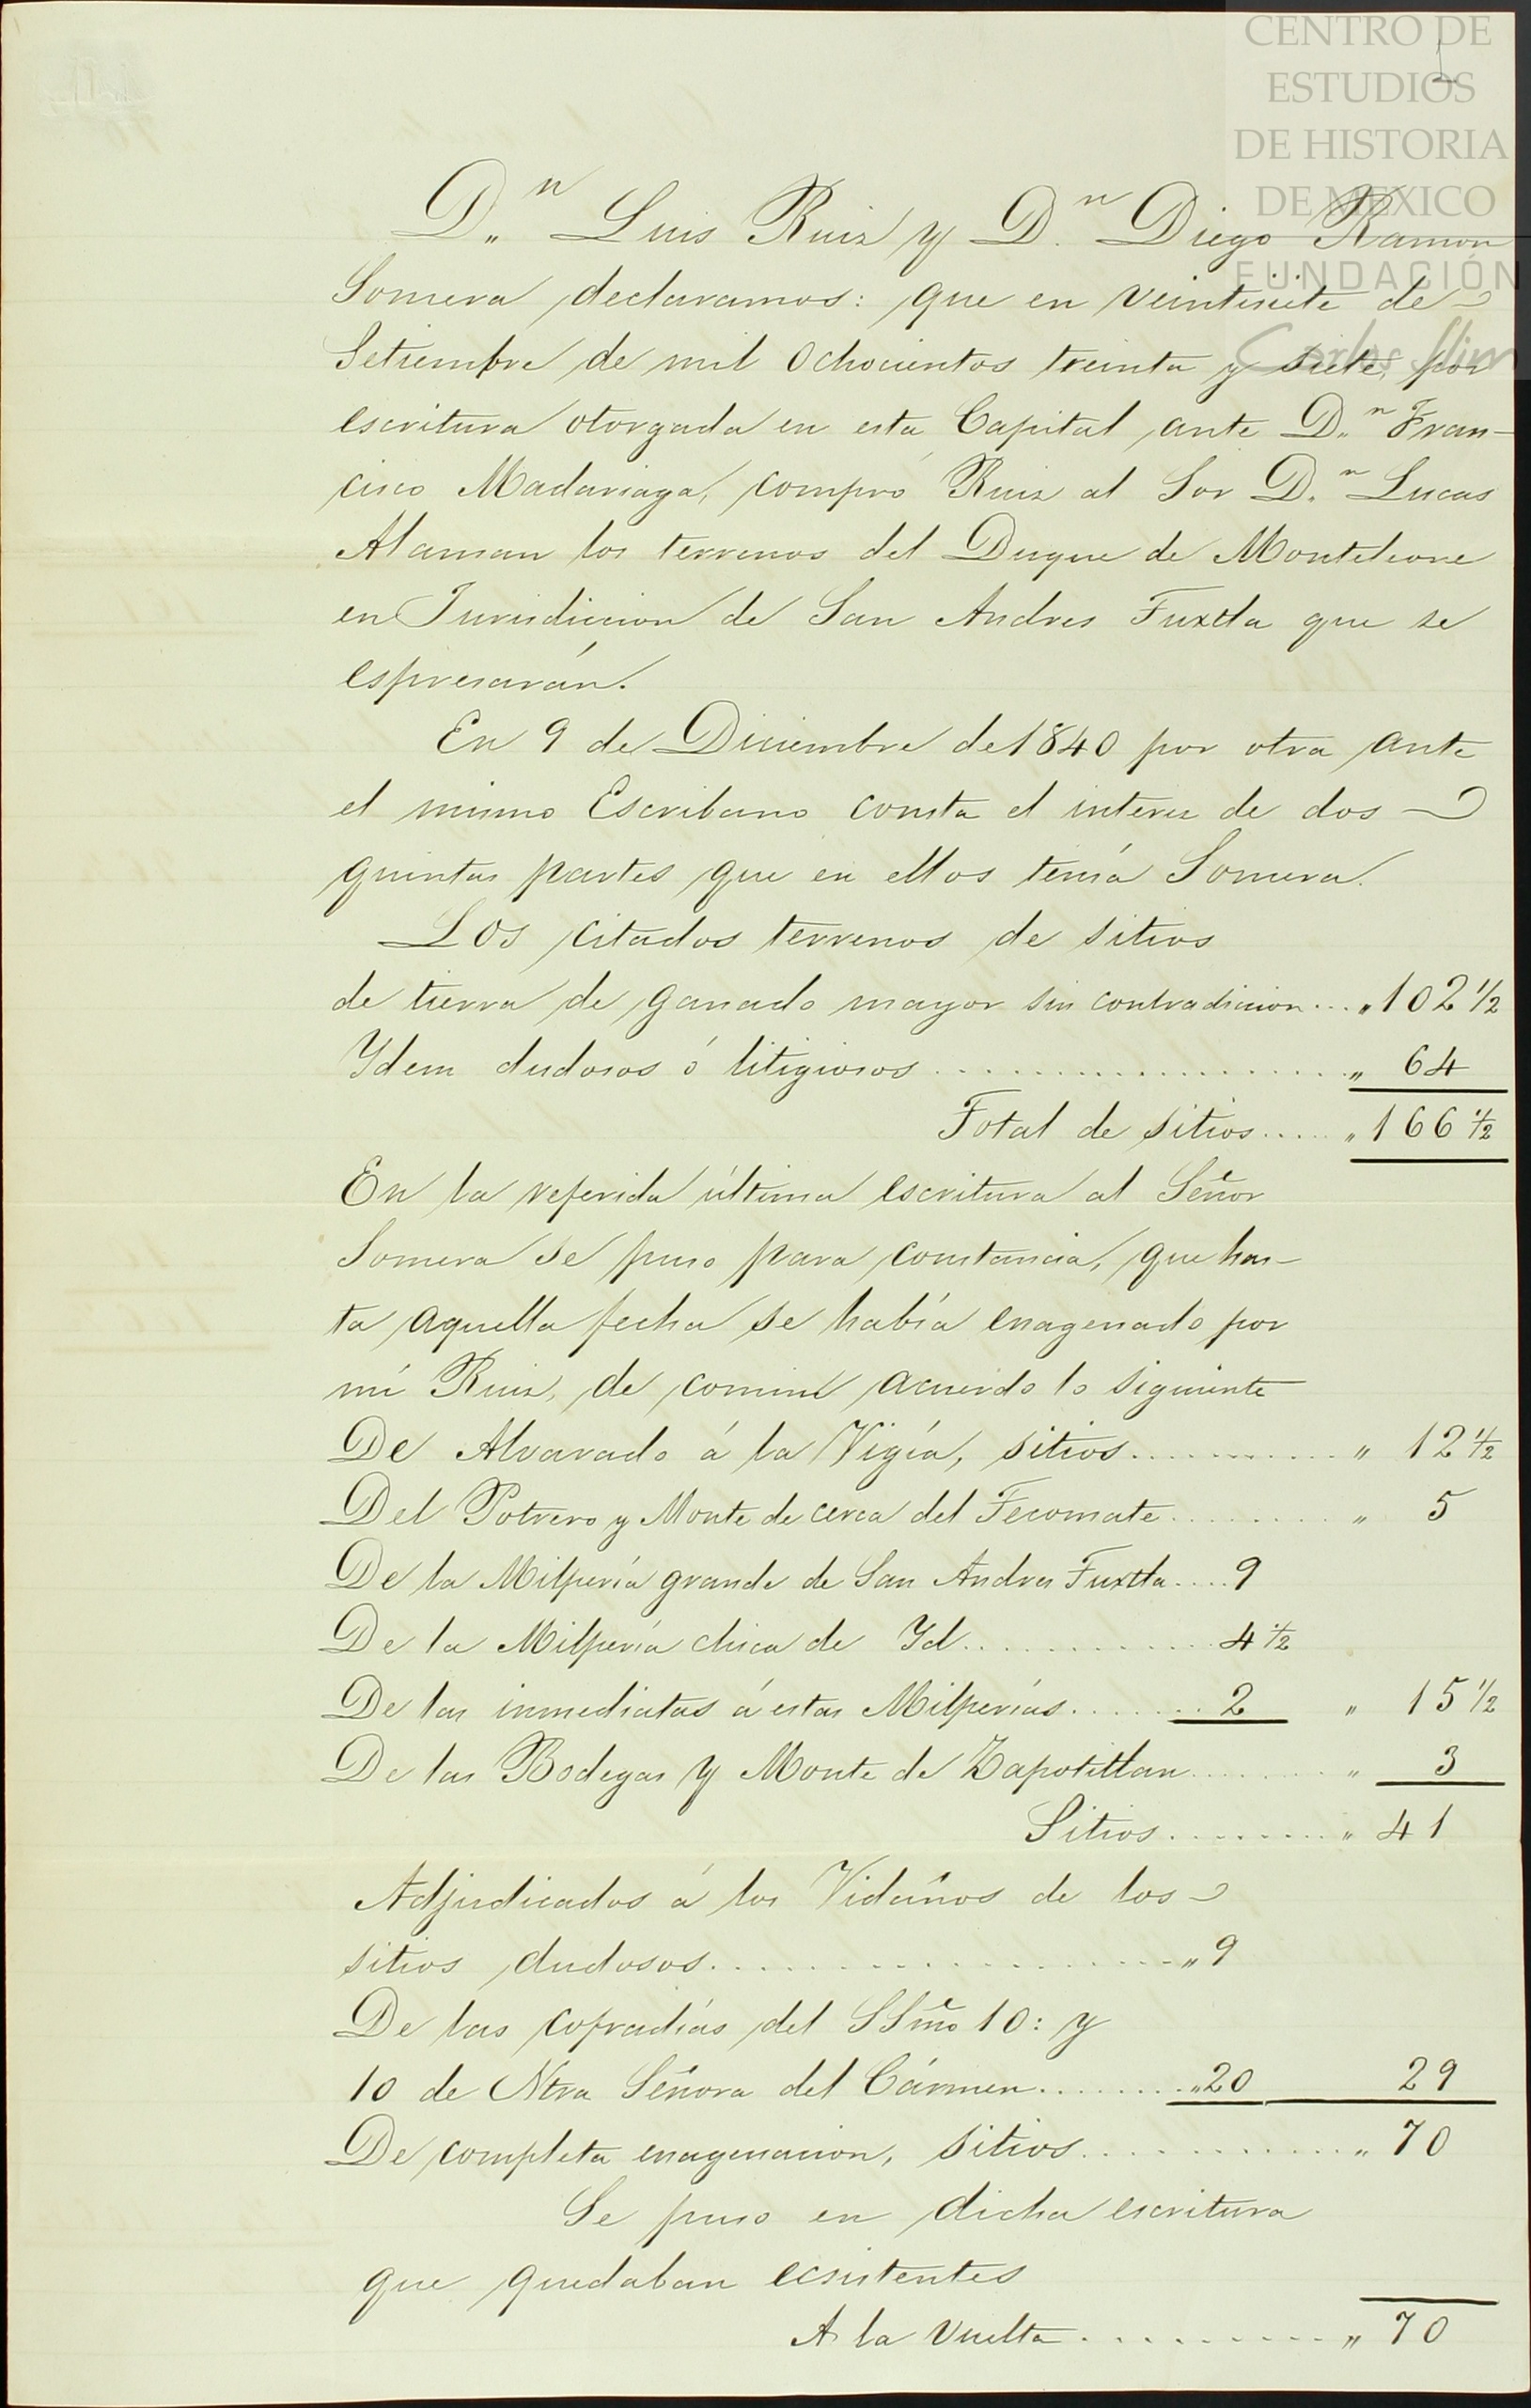 CENTRO DE
ESTUDIOS
DE HISTORIA
DE MEXICO
FUNDACIÓN
Carlos Slim
1
D.ⁿ Luis Ruiz y D.ⁿ Diego Ramon
Somera declaramos: que en veintisiete de
Setiembre de mil ochocientos treinta y siete, por
escritura otorgada en esta Capital ante D.ⁿ Fran-
cisco Madariaga, compró Ruiz al Sor D.ⁿ Lucas
Alaman los terrenos del Duque de Monteleone
en Jurisdiccion de San Andres Tuxtla que se
espresarán.
En 9 de Diciembre de 1840 por otra ante
el mismo Escribano consta el interes de dos
quintas partes que en ellos tenía Somera.
Los citados terrenos de sitios
de tierra de ganado mayor sin contradicion... „ 102 1/2
Ydem dudosos ó litigiosos .................. „ 64
Total de sitios..... „ 166 1/2
En la referida última escritura al Señor
Somera se puso para constancia, que has-
ta aquella fecha se había enagenado por
mí Ruiz, de comun acuerdo lo siguiente
De Alvarado á la Vigía, sitios........... „ 12 1/2
Del Potrero y Monte de cerca del Tecomate......... „ 5
De la Milpería grande de San Andres Tuxtla.... 9
De la Milpería chica de Yd.............. 4 1/2
De las inmediatas á estas Milperías........ 2 „ 15 1/2
De las Bodegas y Monte de Zapotitlan......... „ 3
Sitios.......... „ 41
Adjudicados á los Vidaños de los
sitios dudosos.................... „ 9
De las cofradías del SSmo 10: y
10 de Ntra Señora del Cármen......... „ 20 29
De completa enagenacion, sitios.............. „ 70
Se puso en dicha escritura
que quedaban ecsistentes
A la vuelta............ „ 70